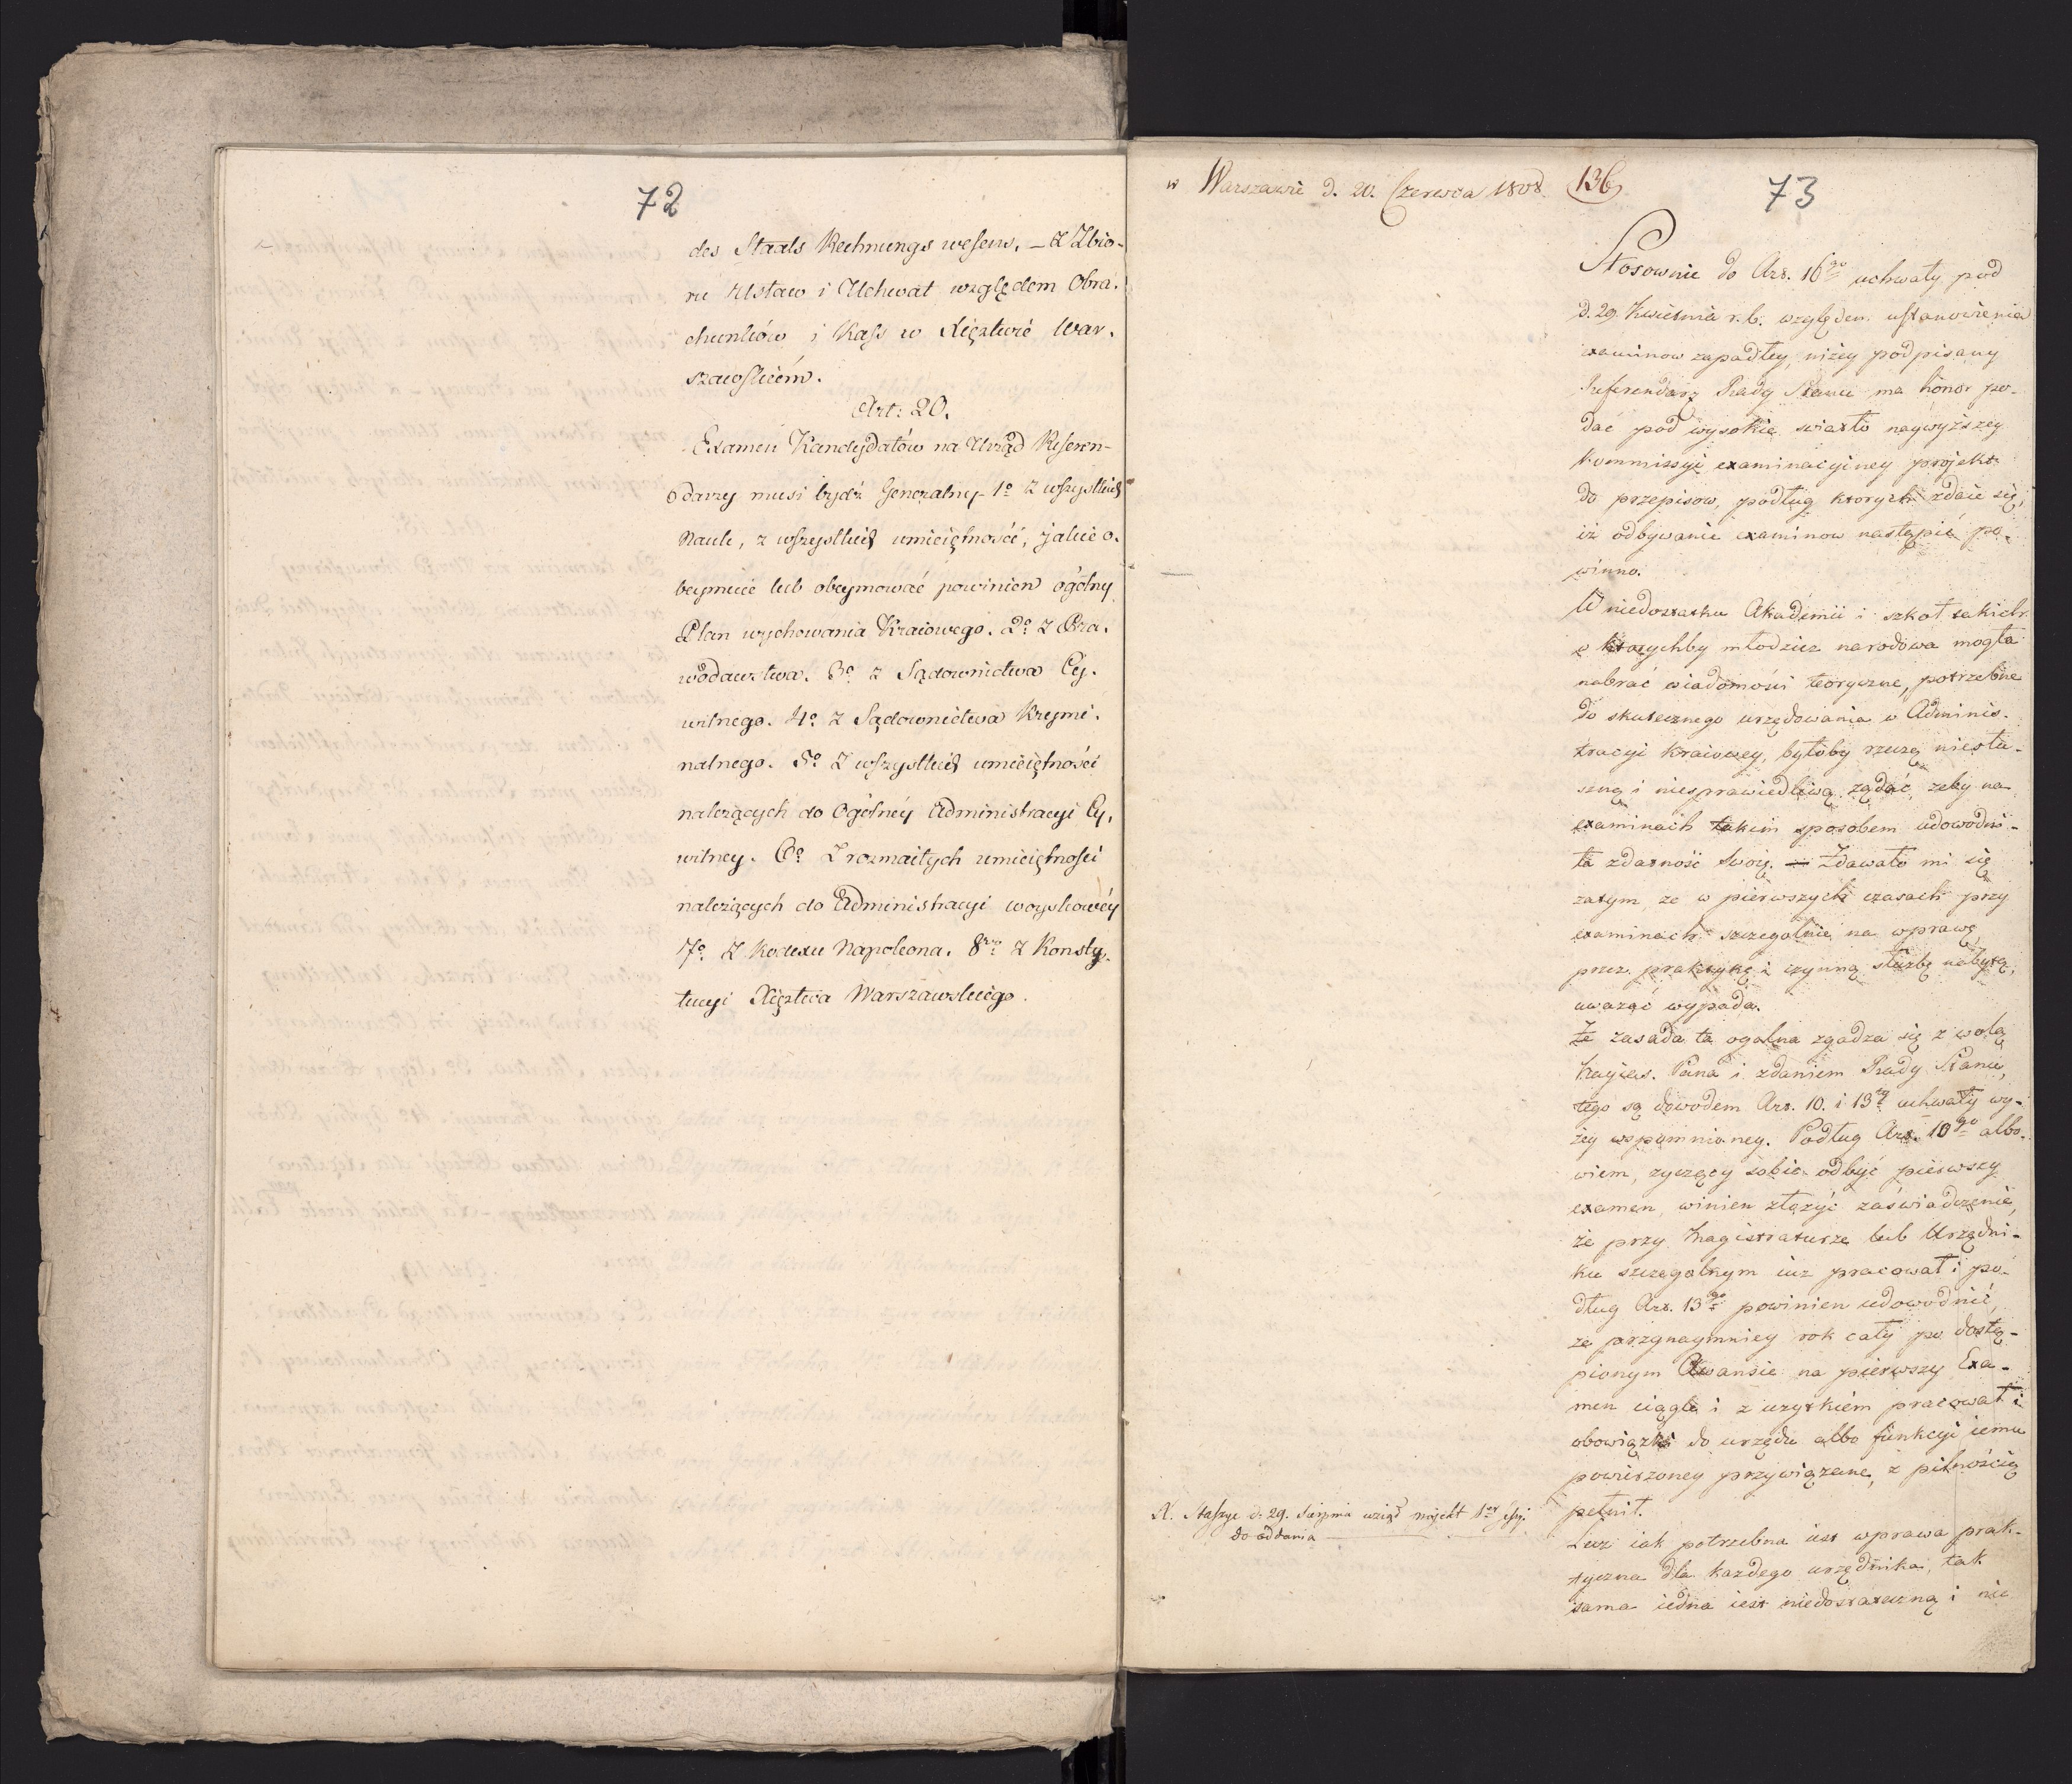 72
des Staats Rechnungs wesens. – Z Zbio-
ru Ustaw i Uchwał względem Obra-
chunków i Kass w Xięztwie War-
szawskiém.
Art: 20.
Examen Kandydatów na Urząd Referen-
darzy musi bydź Generalny 1º z wszystkich
Nauk, z wszystkich umieiętność, jakie o-
beymuie lub obeymować powinien ogólny
Plan wychowania Kraiowego. 2º z Pra-
wodawstwa. 3º z Sądownictwa Cy-
wilnego. 4º z Sądownictwa Krymi-
nalnego. 5º Z wszystkich umieiętności
należących do Ogólnéy Administracyi Cy-
wilney. 6º Z rozmaitych umieiętności
należących do Administracyi woyskowéy
7º Z Kodexu Napoleona. 8vo z Konsty-
tucyi Xięztwa Warszawskiego.
w Warszawie d. 20. Czerwca 1808.
136
73
Stosownie do Art. 16go uchwały pod
d. 29. Kwietnia r. b. względem ustanowienia
examinow zapadłey, niżey podpisany
Referendarz Rady Stanu ma honor po-
dać pod wysokie swiatło naywyższey
Kommissyi examinacyiney projekt
do przepisow, podług ktorych zdaie się,
iż odbywanie examinow nastąpić po-
winno.
W niedostatku Akademii i szkoł takich
w ktorychby młodzież narodowa mogła
nabrać wiadomości teoryczne, potrzebne
do skutecznego urzędowania w Adminis-
tracyi kraiowey, byłoby rzeczą niesłu-
szną i niesprawiedliwą żądać, żeby na
examinach takim sposobem udowodni-
ła zdatność swoię. — Zdawało mi się
zatym, że w pierwszych czasach przy
examinach szczegolnie na wprawę,
przez praktykę i czynną służbę nabytą,
uważać wypada.
Że zasada ta ogolna zgadza się z wolą
Nayias. Pana i zdaniem Rady Stanu,
tego są dowodem Art. 10. i 13ty uchwały wy-
żey wspomnioney. Podług Art. 10go albo-
wiem, zyczący sobie odbyć pierwszy
examen, winien złożyć zaświadczenie,
że przy Magistraturze lub Urzędni-
ku szczegolnym iuż pracował i po-
dług Art. 13go powinien udowodnić,
że przynaymniey rok cały po dostą-
pionym Awansie na pierwszy Exa-
men ciągle i z użytkiém pracował i
obowiązki do urzędu albo funkcyi iemu
powierzoney przywiązane, z pilnością
pełnił.
Lecz iak potrzebna iest wprawa prak-
tyczna dla każdego urzędnika, tak
sama iedna iest niedostateczną i nie
X. Staszyc d. 29. Sierpnia wziął projekt
do oddania